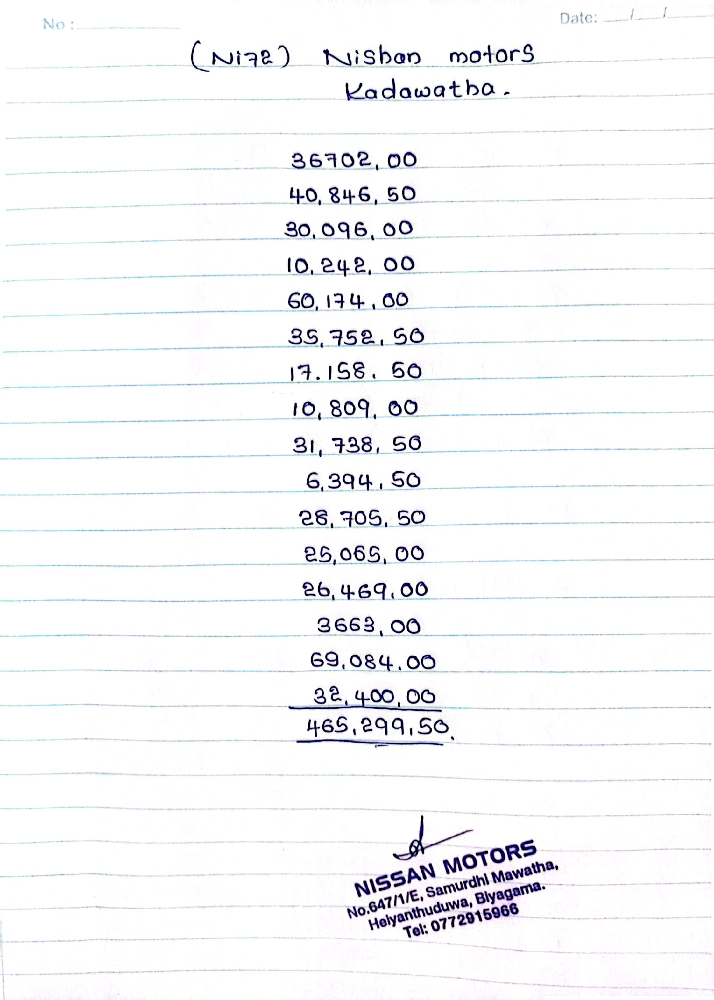 No :
Date: / /
(Ni72) Nishan motors
Kadawatha.
36702,00
40,846,50
30,096,00
10,242,00
60,174,00
35,752,50
17.158.50
10,809,00
31,738,50
6,394,50
28,705,50
25,065,00
26,469.00
3663,00
69,084.00
32,400,00
465,299,50.
NISSAN MOTORS
No.647/1/E, Samurdhi Mawatha,
Heiyanthuduwa, Biyagama.
Tel: 0772915966